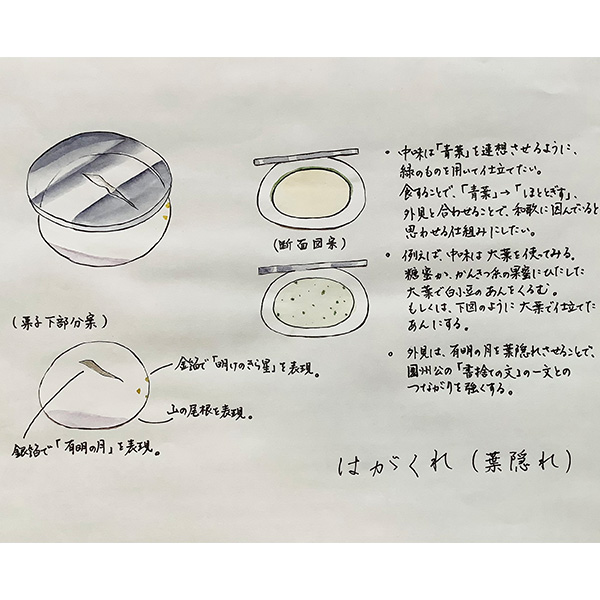 ・中味は「青葉」を連想させるように、
緑のものを用いて仕立てたい。
食すことで、「青葉」→「ほととぎす」、
外見と合わせることで、和歌に因んでいると
思わせる仕組みにしたい。
・例えば、中味は大葉を使ってみる。
糖蜜か、かんきつ系の果蜜にひたした
大葉で白小豆のあんをくるむ。
もしくは、下図のように大葉で仕立てた
あんにする。
・外見は、有明の月を葉隠れさせることで、
國州公の「書捨ての文」の一文との
つながりを強くする。
(断面図案)
(菓子下部分案)
金箔で「明けのきら星」を表現。
山の尾根を表現。
銀箔で「有明の月」を表現。
はがくれ(葉隠れ)